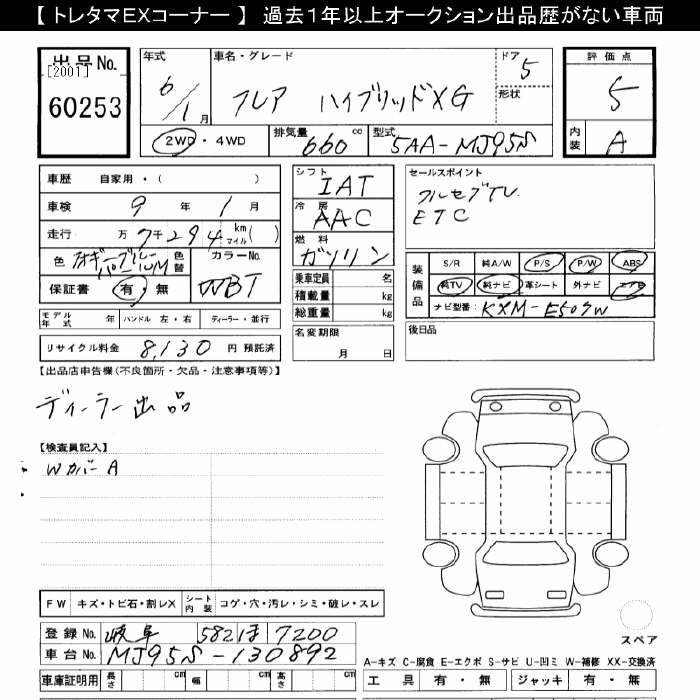 【 トレタマEXコーナー 】 過去1年以上オークション出品歴がない車両
出品No. [2001] 60253
年式 6/1月
車名・グレード フレア ハイブリッドXG
ドア 5
形状
2WD・4WD
排気量 660 cc
型式 5AA-MJ95S
評価点 5
内装 A
車歴 自家用・( )
車検 9年 1月
走行 万7千294 km マイル ( )
色 色替 カラーNo. WBT
保証書 有・無
モデル年式 年 ハンドル 左・右 ディーラー・並行
リサイクル料金 8,130 円 預託済
シフト IAT
冷房 AAC
燃料 ガソリン
乗車定員 名
積載量 kg
総重量 kg
名変期限 月 日
セールスポイント
フルセグTV
ETC
装備品 S/R 純A/W P/S P/W ABS
純TV 純ナビ 革シート 外ナビ エアB
ナビ型番: KXM-E507W
後日品
【出品店申告欄(不良箇所・欠品・注意事項等)】
ディーラー出品
【検査員記入】
Wカバー A
FW キズ・トビ石・割レX シート内装 コゲ・穴・汚レ・シミ・破レ・スレ
登録No. 岐阜 582 7200
車台No. MJ95S-130892
車庫証明用 長さ cm 幅 cm 高さ cm
スペア
A-キズ C-腐食 E-エクボ S-サビ U-凹ミ W-補修 XX-交換済
工具 有・無 ジャッキ 有・無